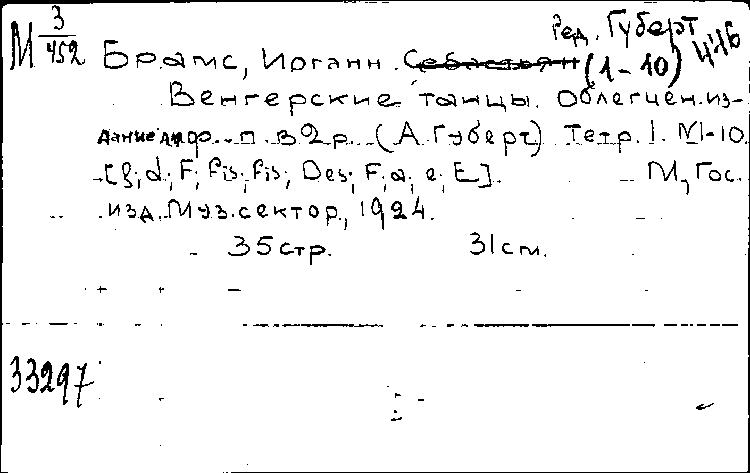 М 3/452
Ред. Губерт
Брамс, Иоганн. Себастьян (1-10)
Венгерские танцы. Облегчен. из-
дание для ф. п. в 2 р. (А. Губерт) Тетр. I. №1-10.
[g; d; F; fis; fis; Des; F; a; e; E]. М, Гос.
изд. Муз. сектор, 1924.
35 стр. 31 см.
33297